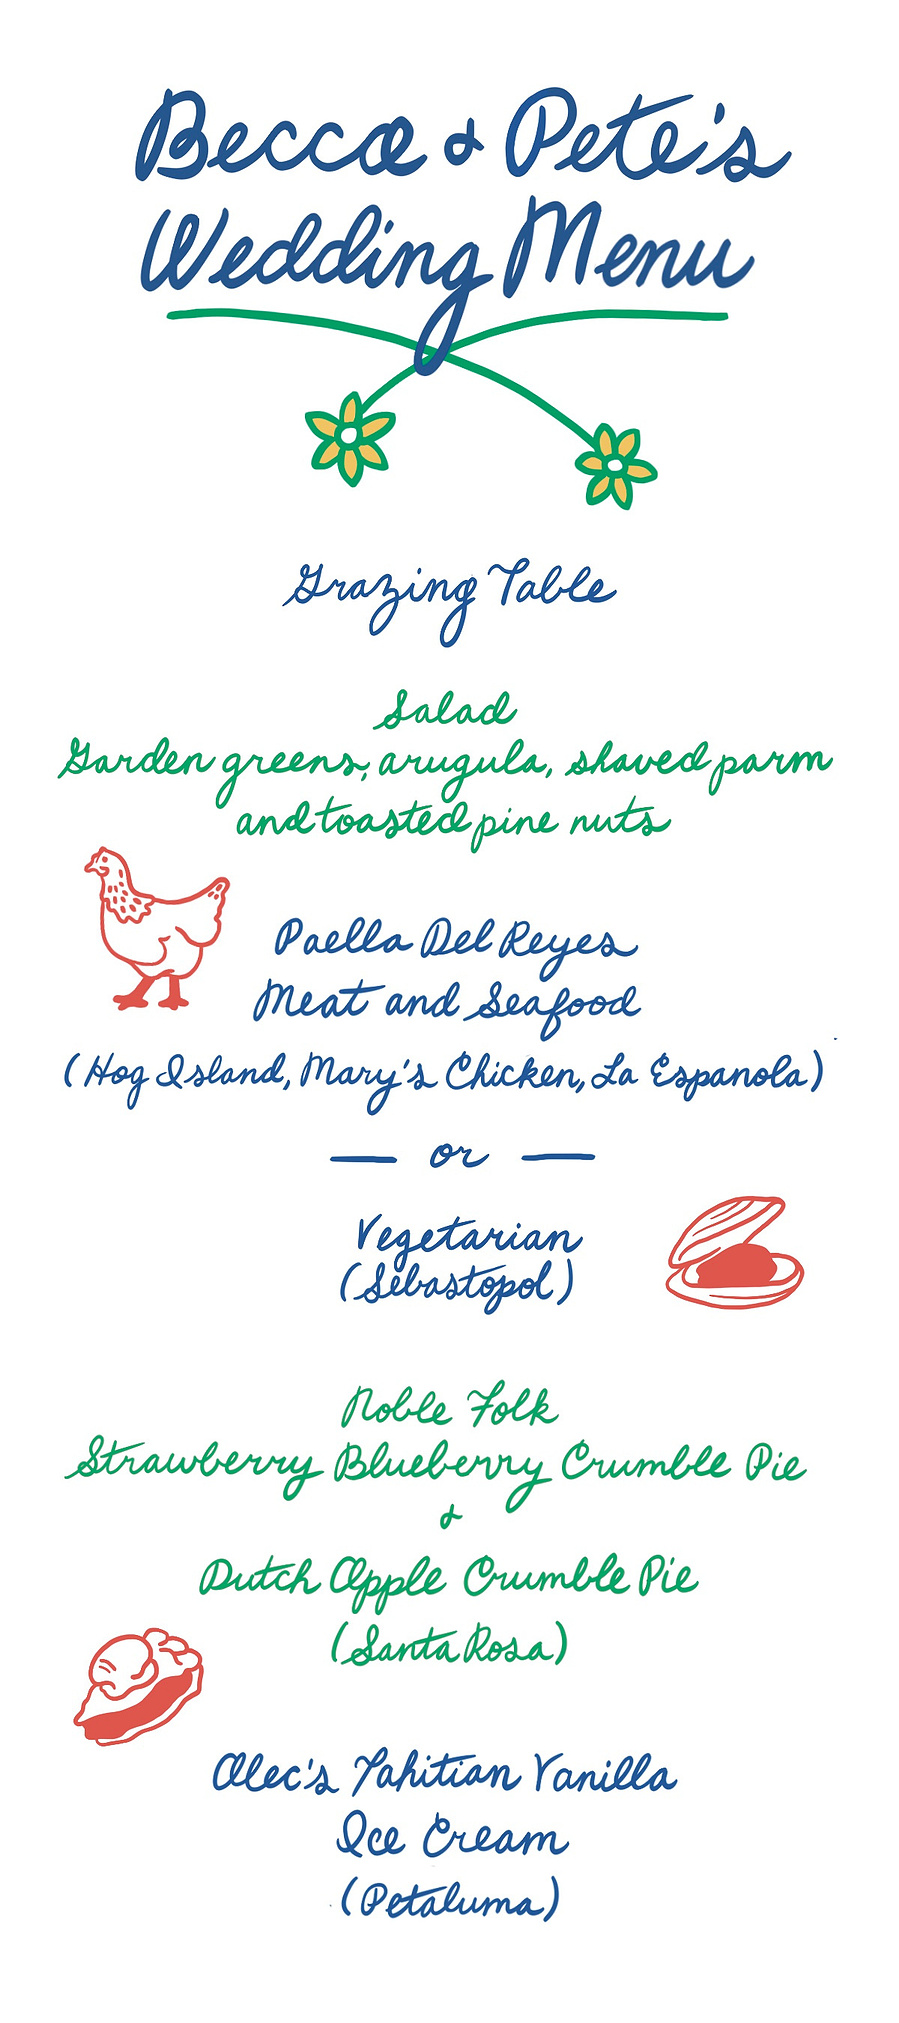 Becca & Pete's
Wedding Menu
Grazing Table
Salad
Garden greens, arugula, shaved parm
and toasted pine nuts
Paella Del Reyes
Meat and Seafood
(Hog Island, Mary's Chicken, La Espanola)
— or —
Vegetarian
(Sebastopol)
Noble Folk
Strawberry Blueberry Crumble Pie
&
Dutch Apple Crumble Pie
(Santa Rosa)
Alec's Tahitian Vanilla
Ice Cream
(Petaluma)